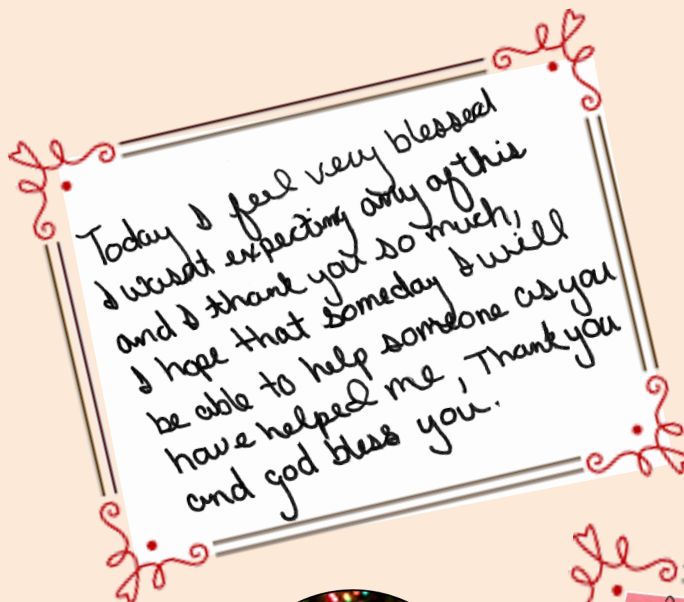 Today I feel very blessed
I wasnt expecting any of this
and I thank you so much,
I hope that someday I will
be able to help someone as you
have helped me, Thank you
and god bless you.